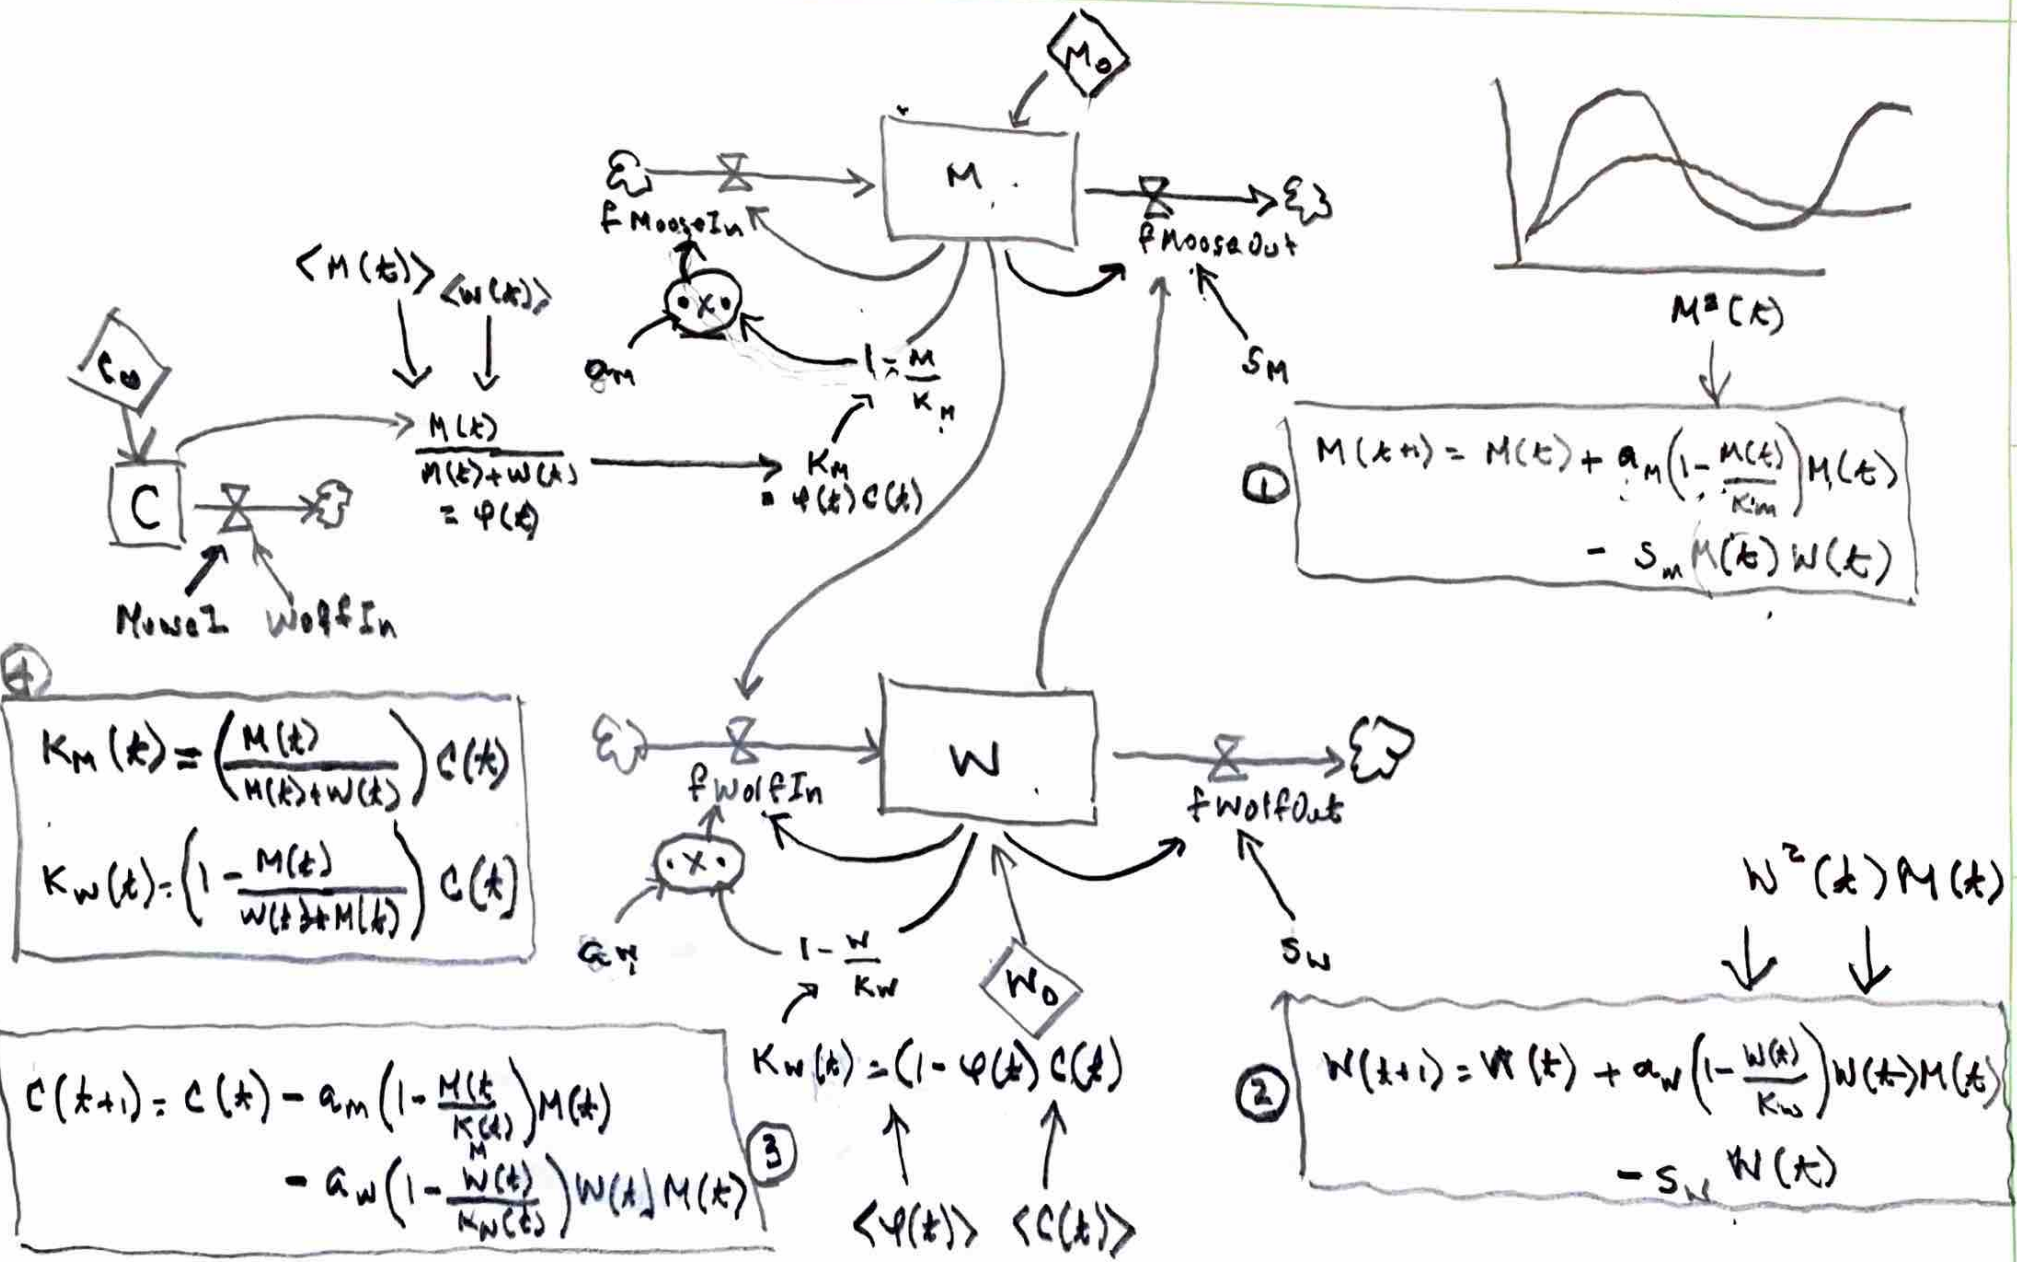 M₀
M
fMooseIn
fMooseOut
<M(t)> <W(t)>
• x •
a_M
1 - M/K_M
S_M
M²(t)
C₀
M(t)/(M(t)+W(t))
= φ(t)
K_M
= φ(t) C(t)
C
WolfIn
① M(t+1) = M(t) + a_M(1 - M(t)/K_m) M(t)
- S_m M(t) W(t)
④
K_M(t) = (M(t)/(M(t)+W(t))) C(t)
K_W(t) = (1 - M(t)/(W(t)+M(t))) C(t)
W
fWolfIn
fWolfOut
• x •
a_W
1 - W/K_W
W₀
S_W
W²(t) M(t)
K_W(t) = (1 - φ(t) C(t)
<φ(t)> <C(t)>
② W(t+1) = W(t) + a_W(1 - W(t)/K_W) W(t) M(t)
- S_W W(t)
C(t+1) = C(t) - a_m(1 - M(t/K_M(t)) M(t)
- a_W(1 - W(t)/K_W(t)) W(t) M(t) ③